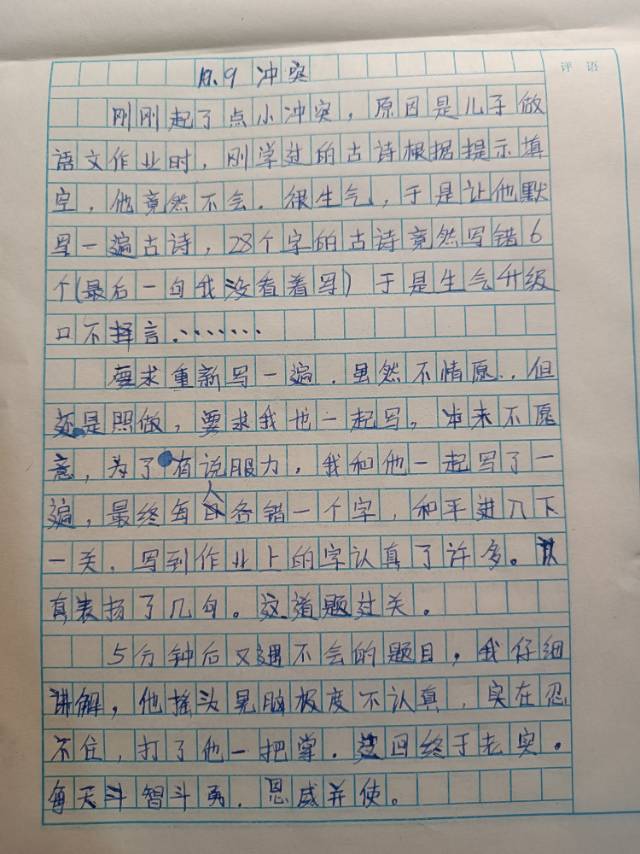 评语
10.9 冲突
刚刚起了点小冲突,原因是儿子做
语文作业时,刚学过的古诗根据提示填
空,他竟然不会。很生气,于是让他默
写一遍古诗,28个字的古诗竟然写错6
个(最后一句我没看着写)于是生气升级
口不择言.......
要求重新写一遍.虽然不情愿..但
还是照做,要求我也一起写。本来不愿
意,为了有说服力,我和他一起写了一
遍,最终每人各错一个字,和平进入下
一关.写到作业上的字认真了许多。认
真表扬了几句。这道题过关.
5分钟后又遇不会的题目,我仔细
讲解,他摇头晃脑极度不认真,实在忍
不住,打了他一把掌.这回终于老实。
每天斗智斗勇.恩威并使。